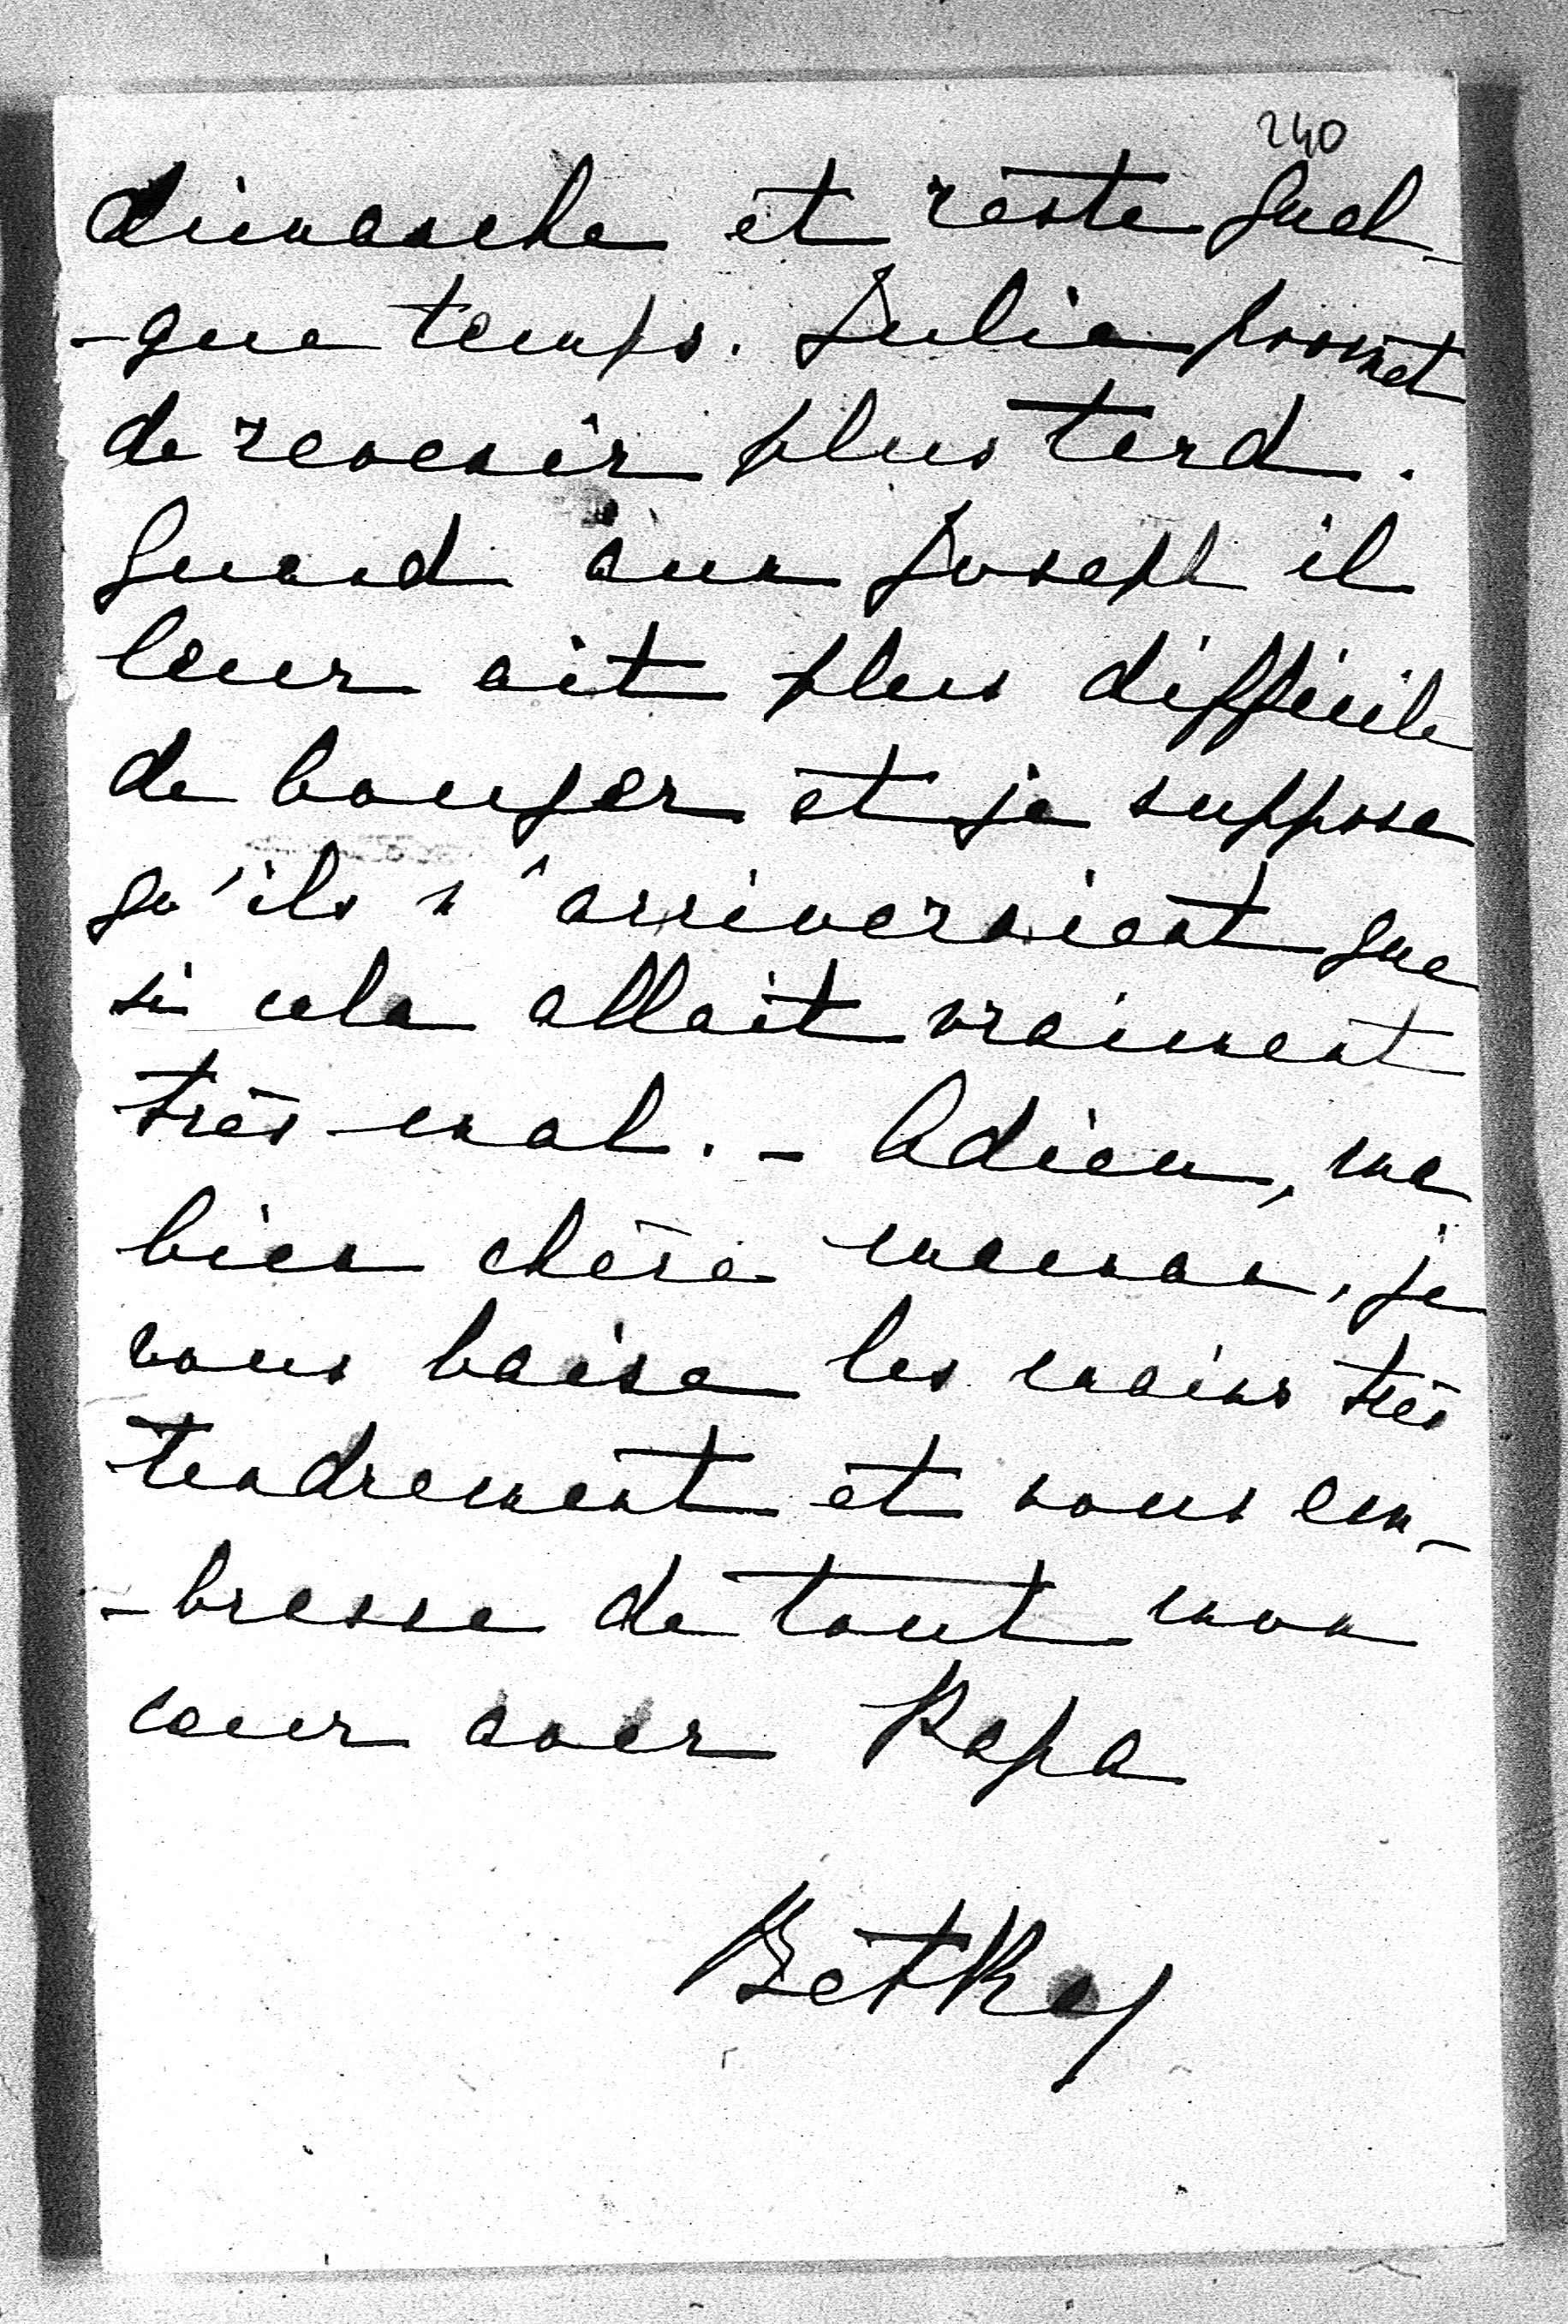 240
dimanche et reste quel-
-que temps. Julia promet
de revenir plus tard.
Quand aux Joseph il
leur ait plus difficile
de bouger et je suppose
qu'ils n'arriveraient que
si cela allait vraiment
très mal. - Adieu, ma
bien chère maman, je
vous baise les mains très
tendrement et vous em-
-brasse de tout mon
cœur avec Papa
Betka